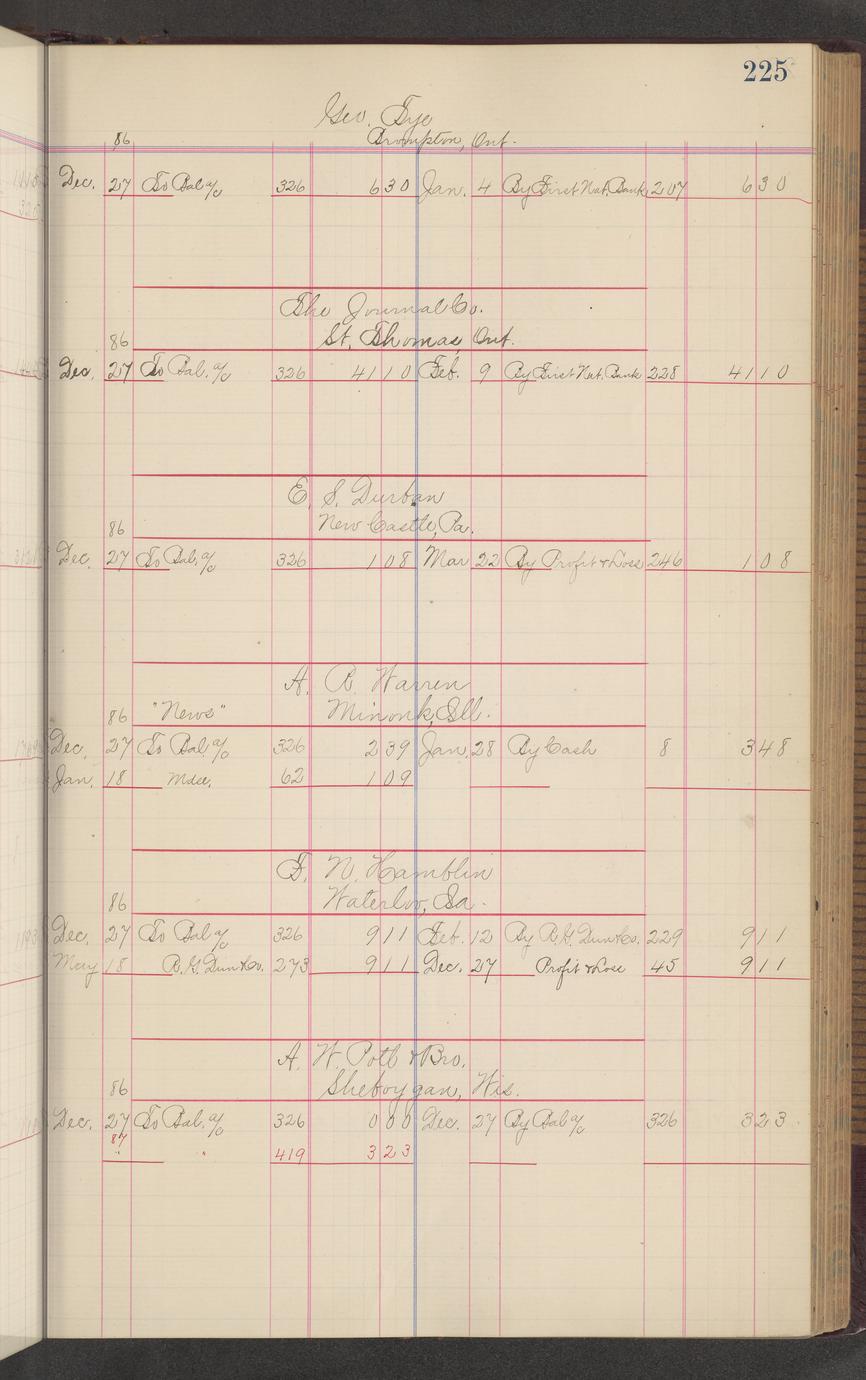 225
Geo. Tye
86 Brompton, Ont.
Dec. 27 To Bal a/c 326 6 30 Jan. 4 By First Nat. Bank 207 6 30
The Journal Co.
86 St. Thomas, Ont.
Dec. 27 To Bal. a/c 326 41 10 Feb. 9 By First Nat. Bank 228 41 10
E. S. Durban
86 New Castle, Pa.
Dec. 27 To Bal. a/c 326 1 08 Mar 22 By Profit & Loss 246 1 08
A. R. Warren
86 "News" Minonk, Ill.
Dec. 27 To Bal. a/c 326 2 39 Jan. 28 By Cash 8 3 48
Jan. 18 Mdse. 62 1 09
F. N. Hamblin
86 Waterloo, Ia.
Dec. 27 To Bal a/c 326 9 11 Feb. 12 By R. G. Dun & Co. 229 9 11
May 18 R. G. Dun & Co. 273 9 11 Dec. 27 Profit & Loss 45 9 11
A. W. Pott & Bro.
86 Sheboygan, Wis.
Dec. 27 To Bal. a/c 326 0 00 Dec. 27 By Bal a/c 326 3 23
87 " " 419 3 23